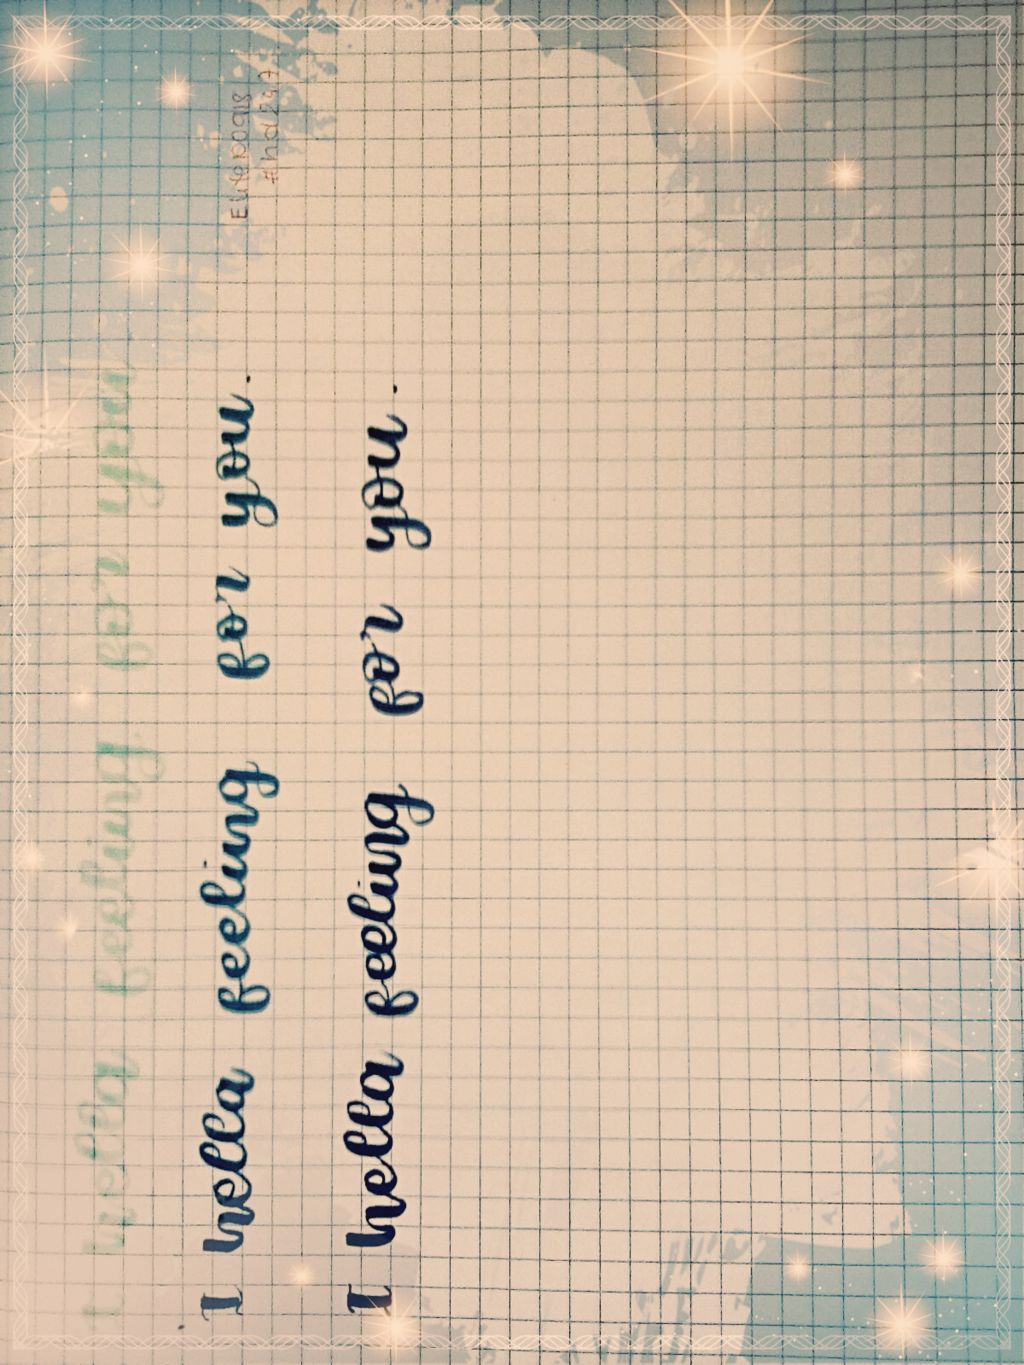 I hella feeling for you
I hella feeling for you.
I hella feeling for you.
#hd247